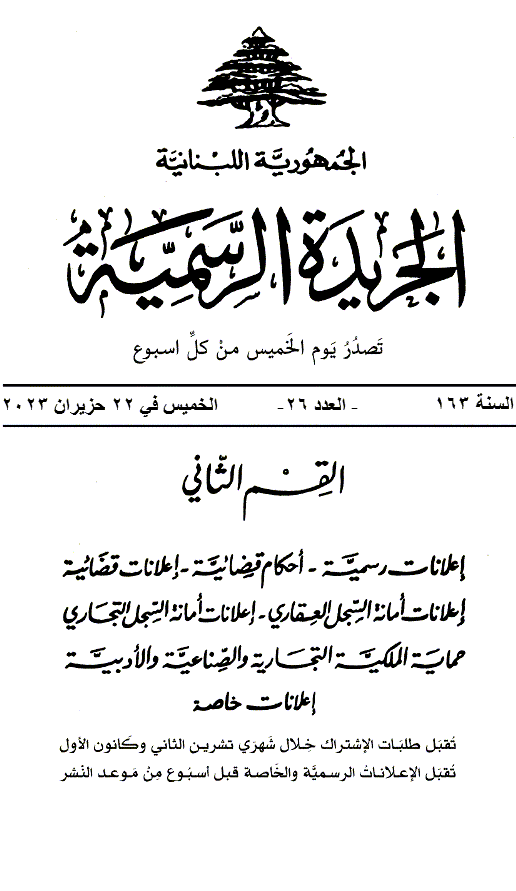 الجمهورية اللبنانية
الجريدة الرسمية
تصدر يوم الخميس من كل اسبوع
السنة ١٦٣ - العدد ٢٦ - الخميس في ٢٢ حزيران ٢٠٢٣
القسم الثاني
إعلانات رسمية - أحكام قضائية - إعلانات قضائية
إعلانات أمانة السجل العقاري - إعلانات أمانة السجل التجاري
حماية الملكية التجارية والصناعية والأدبية
إعلانات خاصة
تُقبَل طلبَات الإشتراك خِلال شَهرَي تشرين الثاني وكَانون الأول
تُقبَل الإعلاناتُ الرسميَّة والخَاصة قبل أسبُوع مِنْ مَوعد النَشر